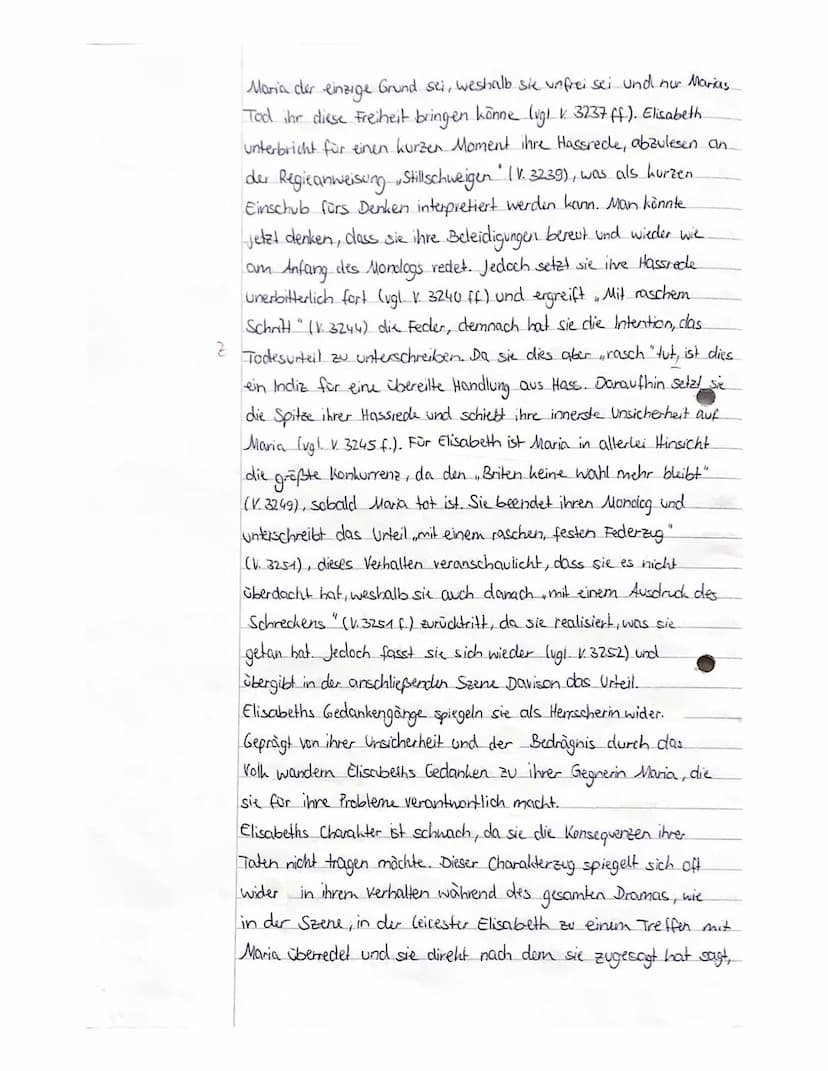 Maria der einzige Grund sei, weshalb sie unfrei sei und nur Marias
Tod ihr diese Freiheit bringen könne (vgl. V. 3237 ff.). Elisabeth
unterbricht für einen kurzen Moment ihre Hassrede, abzulesen an
der Regieanweisung „Stillschweigen" (V. 3239), was als kurzen
Einschub fürs Denken interpretiert werden kann. Man könnte
jetzt denken, dass sie ihre Beleidigungen bereut und wieder wie
am Anfang des Monologs redet. Jedoch setzt sie ihre Hassrede
unerbitterlich fort (vgl. V. 3240 ff) und ergreift „Mit raschem
Schritt" (V. 3244) die Feder, demnach hat sie die Intention, das
Z Todesurteil zu unterschreiben. Da sie dies aber „rasch" tut, ist dies
ein Indiz für eine übereilte Handlung aus Hass. Daraufhin setzt sie
die Spitze ihrer Hassrede und schiebt ihre innerste Unsicherheit auf
Maria (vgl. V. 3245 f.). Für Elisabeth ist Maria in allerlei Hinsicht
die größte Konkurrenz, da den „Briten keine Wahl mehr bleibt"
(V. 3249), sobald Maria tot ist. Sie beendet ihren Monolog und
unterschreibt das Urteil „mit einem raschen, festen Federzug"
(V. 3251), dieses Verhalten veranschaulicht, dass sie es nicht
überdacht hat, weshalb sie auch danach „mit einem Ausdruck des
Schreckens" (V. 3251 f.) zurücktritt, da sie realisiert, was sie
getan hat. Jedoch fasst sie sich wieder (vgl. V. 3252) und
übergibt in der anschließenden Szene Davison das Urteil.
Elisabeths Gedankengänge spiegeln sie als Herrscherin wider.
Geprägt von ihrer Unsicherheit und der Bedrägnis durch das
Volk wandern Elisabeths Gedanken zu ihrer Gegnerin Maria, die
sie für ihre Probleme verantwortlich macht.
Elisabeths Charakter ist schwach, da sie die Konsequenzen ihrer
Taten nicht tragen möchte. Dieser Charakterzug spiegelt sich oft
wider in ihrem Verhalten während des gesamten Dramas, wie
in der Szene, in der Leicester Elisabeth zu einem Treffen mit
Maria überredet und sie direkt nach dem sie zugesagt hat sagt,